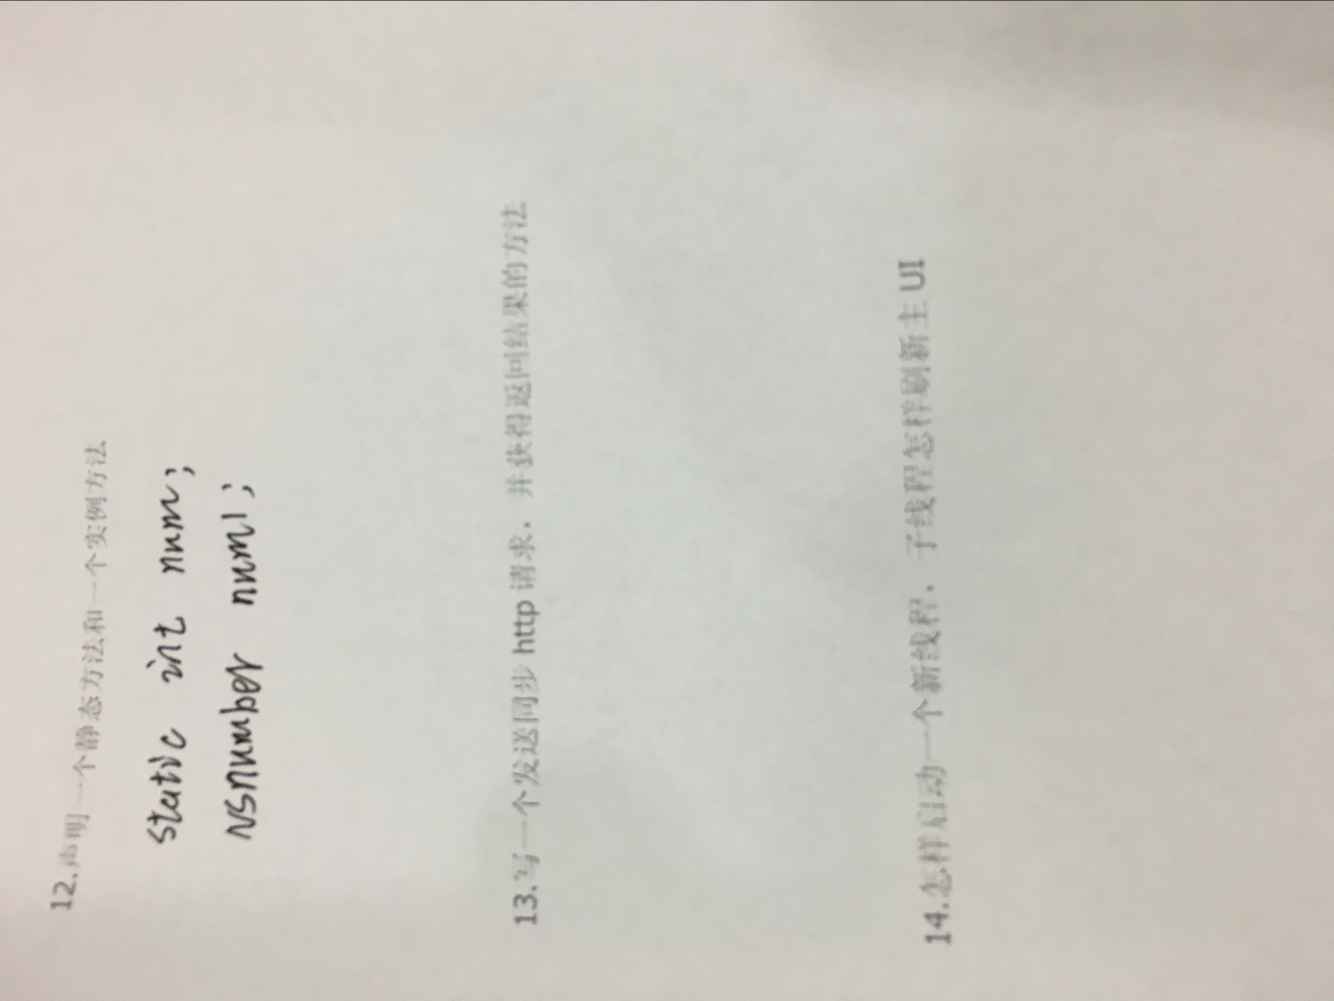 12.声明一个静态方法和一个实例方法
static int num;
NSnumber num1;
13.写一个发送同步 http 请求，并获得返回结果的方法
14.怎样启动一个新线程，子线程怎样刷新主 UI